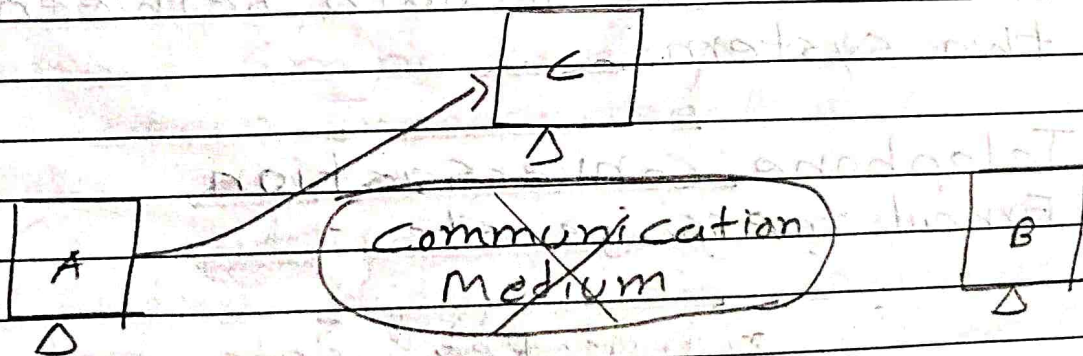 C
A
Communication
Medium
B